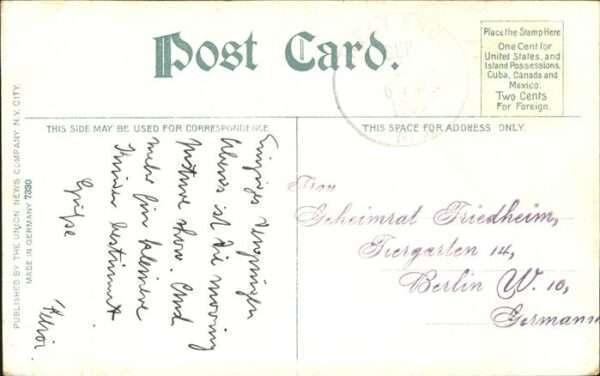 Post Card.
Place the Stamp Here
One Cent for
United States, and
Island Possessions,
Cuba, Canada and
Mexico.
Two Cents
For Foreign.
THIS SIDE MAY BE USED FOR CORRESPONDENCE
THIS SPACE FOR ADDRESS ONLY.
PUBLISHED BY THE UNION NEWS COMPANY, N.Y. CITY.
MADE IN GERMANY 7390
ist die moving
picture show. Und
Kinder bestimmt
Frau
Geheimrat Friedheim,
Tiergarten 14,
Berlin W. 10,
Germany